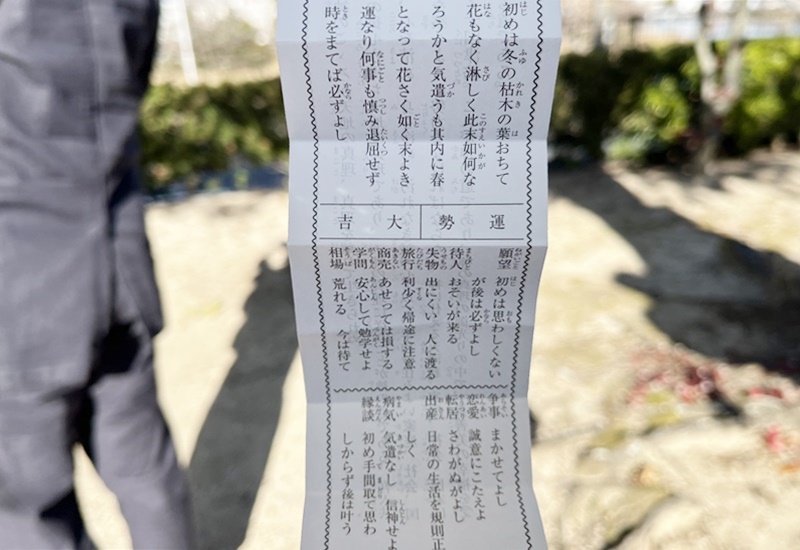 初めは冬の枯木の葉おちて
花もなく淋しく此末如何な
ろうかと気遣うも其内に春
となって花さく如く末よき
運なり何事も慎み退屈せず
時をまてば必ずよし
運勢
大吉
願望 初めは思わしくない
が後は必ずよし
待人 おそいが来る
失物 出にくい 人に渡る
旅行 利少く帰途に注意
商売 あせっては損する
学問 安心して勉学せよ
相場 荒れる 今は待て
争事 まかせてよし
恋愛 誠意にこたえよ
転居 さわがぬがよし
出産 日常の生活を規則正
しく
病気 気遣なし 信神せよ
縁談 初め手間取て思わ
しからず後は叶う